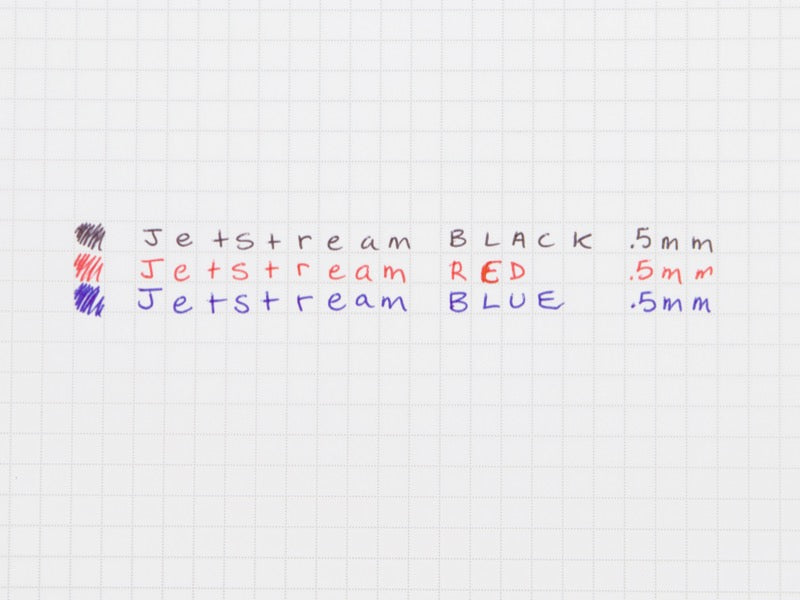 Jetstream BLACK .5mm
Jetstream RED .5mm
Jetstream BLUE .5mm